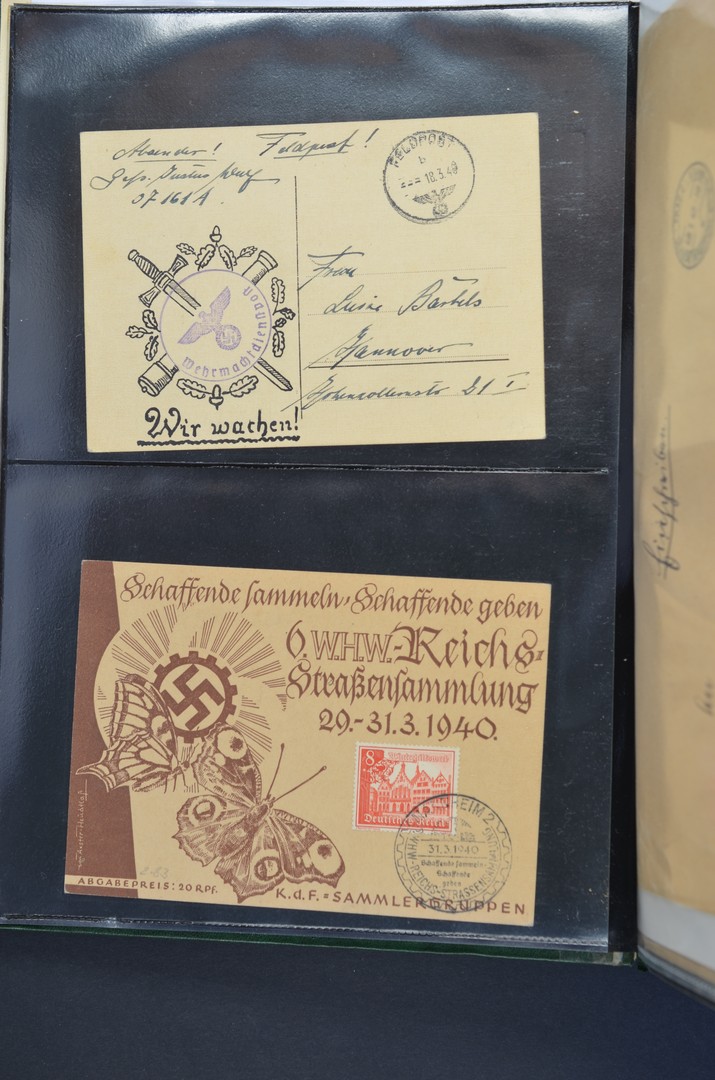 Absender! Feldpost!
07161A.
FELDPOST
b
18.3.40
Frau
Luise Bartels
Hannover
Hohenzollernstr 21 I
Wehrmachtdienstpost
Wir wachen!
Schaffende sammeln, Schaffende geben
6. W.H.W.-Reichs-
Straßensammlung
29.-31.3.1940.
8
Deutsches Reich
31.3.1940
Schaffende sammeln-
Schaffende
geben
WHW-REICHS-STRASSENSAMMLUNG
ABGABEPREIS: 20 RPF.
K.d.F.=SAMMLERGRUPPEN
Einschreiben